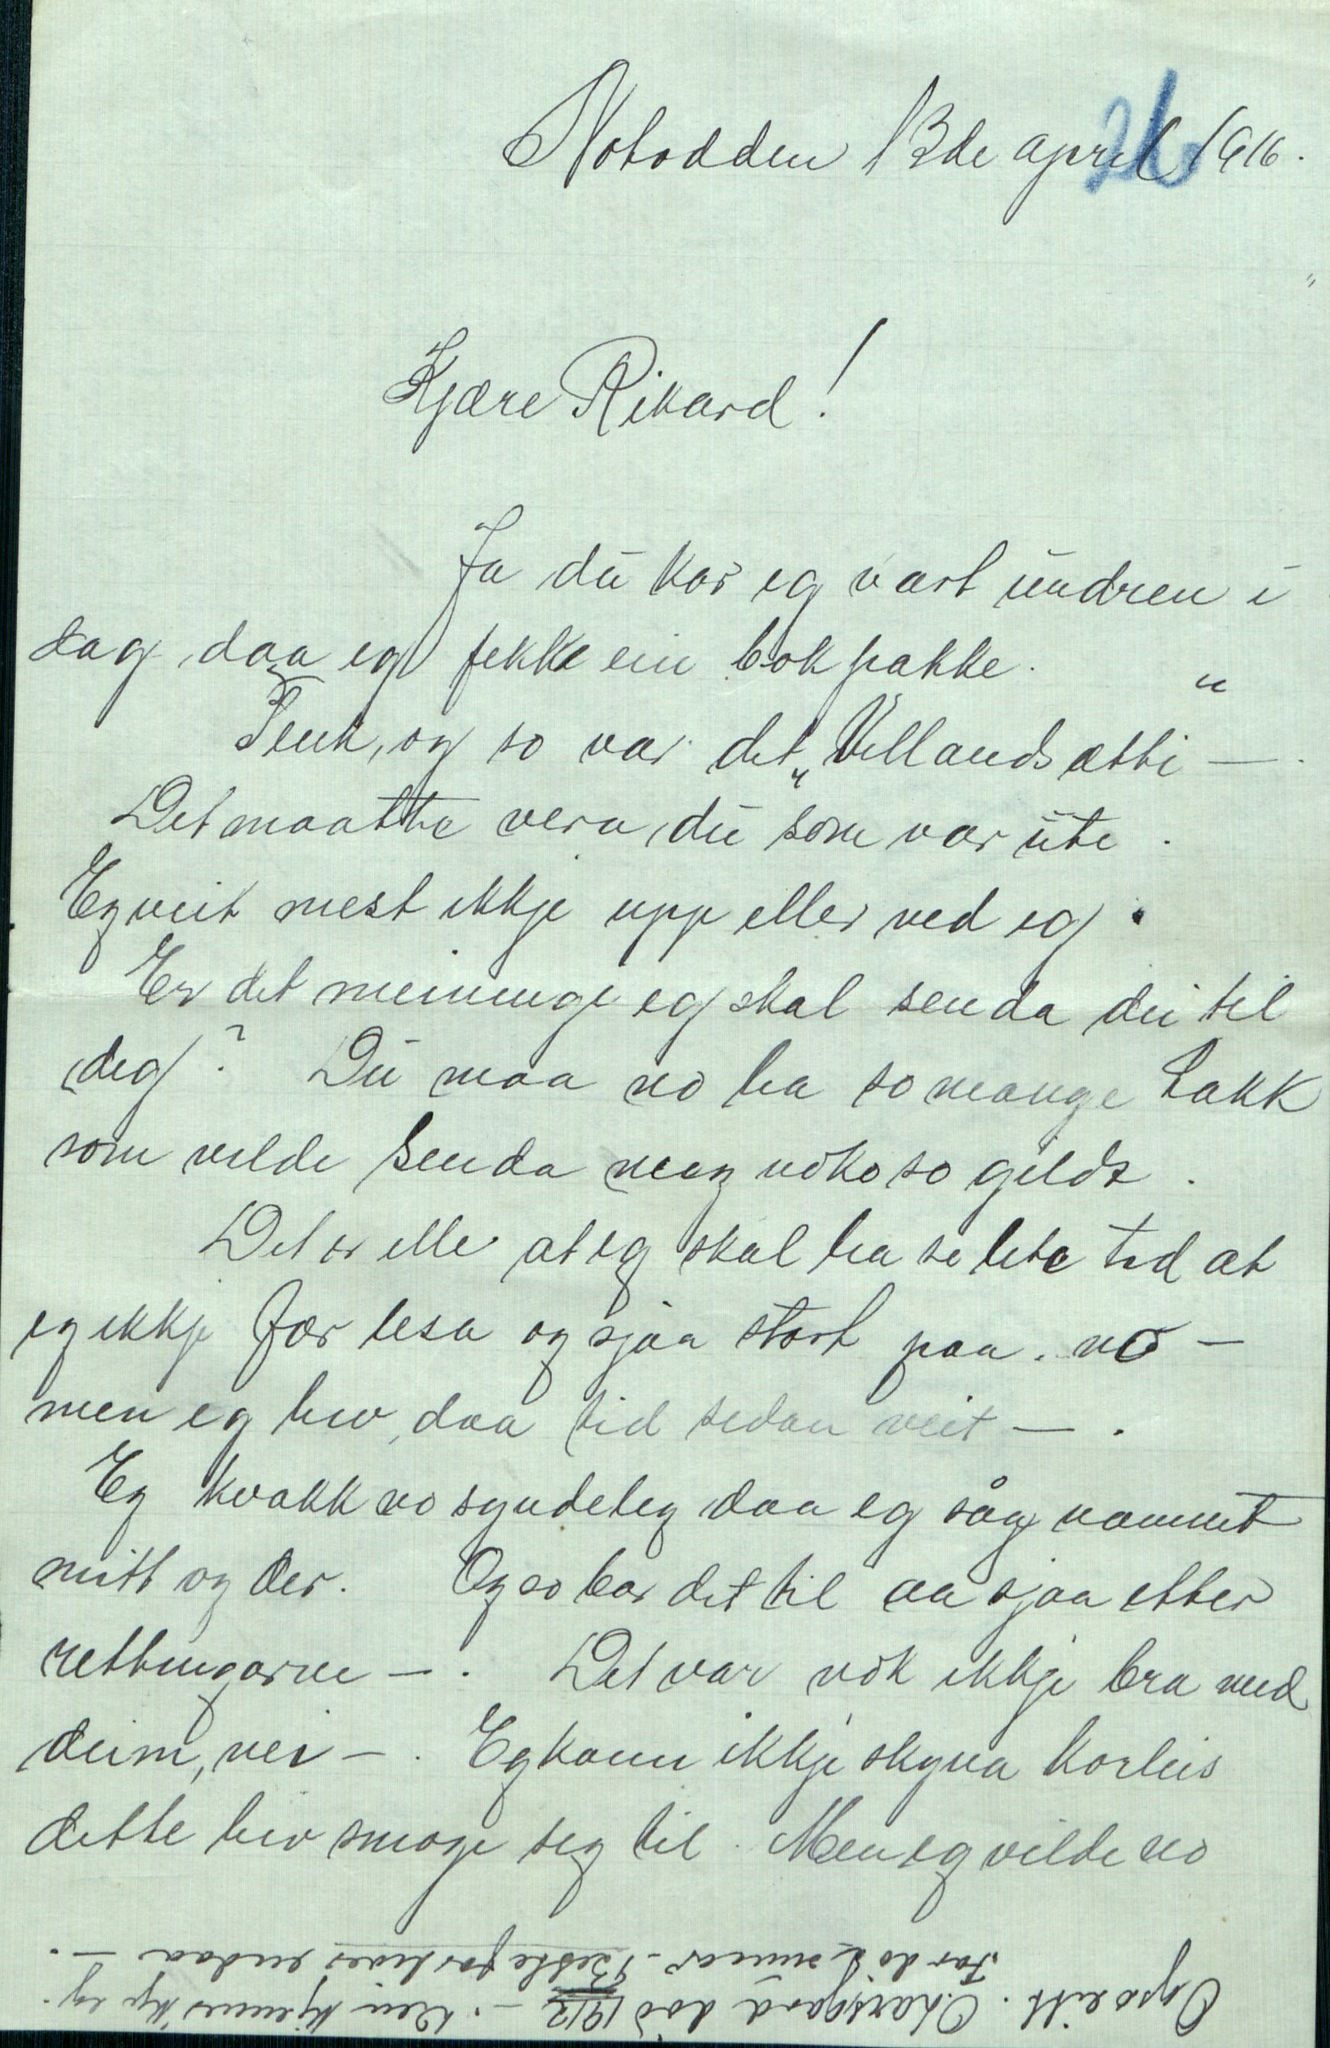 Notodden 13de april 1916.
26
Kjære Rikard!
Ja du kor eg vart undren i
dag, daa eg fekk ein bokpakke.
Tenk, og so var det „Vellandsætti" —.
Det maatte vera du som var ute.
Eg veit mest ikkje upp eller ned eg.
Er det meininge eg skal senda du til
deg? Du maa no ha so mange takk
som vilde senda meg noko so gildt.
Det er ille at eg skal ha so lite tid at
eg ikkje fær lesa og sjaa stort paa. no —
men eg hev daa tid sidan veit — .
Eg kvakk no syndeleg daa eg såg namnet
mitt og der. Og so bar det til aa sjaa etter
rettingarne — . Det var nok ikkje bra med
deim, nei — . Eg kann ikkje skyna korleis
dette hev smoge seg til. Men eg vilde no
Og so eitt. Olarsgard død 1912 —. Den kjenner kje eg.
Far do sumar. Bestefar liver endaa — .